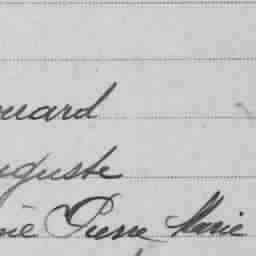 ouard
uguste
né Pierre Marie